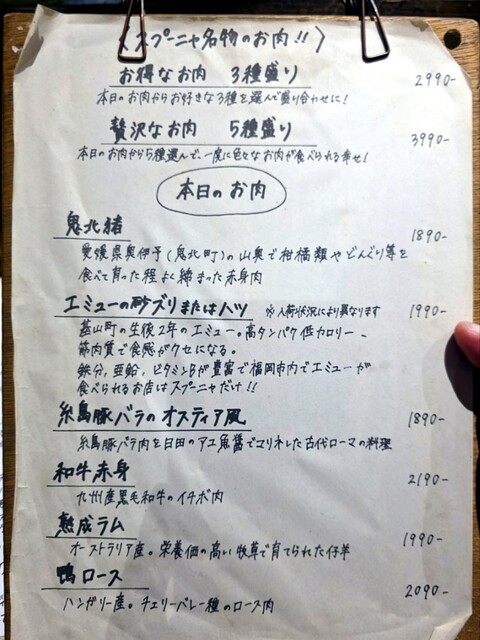 〈スプーニャ名物のお肉!!〉
お得なお肉 3種盛り 2990-
本日のお肉からお好きな3種を選んで盛り合わせに!
贅沢なお肉 5種盛り 3990-
本日のお肉から5種選んで、一度に色々なお肉が食べられる幸せ!
本日のお肉
鬼北猪 1890-
愛媛県奥伊予(鬼北町)の山奥で柑橘類やどんぐり等を
食べて育った程よく締まった赤身肉
エミューの砂ズリまたはハツ ※入荷状況により異なります 1990-
基山町の生後2年のエミュー。高タンパク低カロリー、
筋肉質で食感がクセになる。
鉄分、亜鉛、ビタミンBが豊富で福岡市内でエミューが
食べられるお店はスプーニャだけ!!
糸島豚バラのオスティア風 1890-
糸島豚バラ肉を日田のアユ魚醤でマリネした古代ローマの料理
和牛赤身 2190-
九州産黒毛和牛のイチボ肉
熟成ラム 1990-
オーストラリア産。栄養価の高い牧草で育てられた仔羊
鴨ロース 2090-
ハンガリー産。チェリーバレー種のロース肉